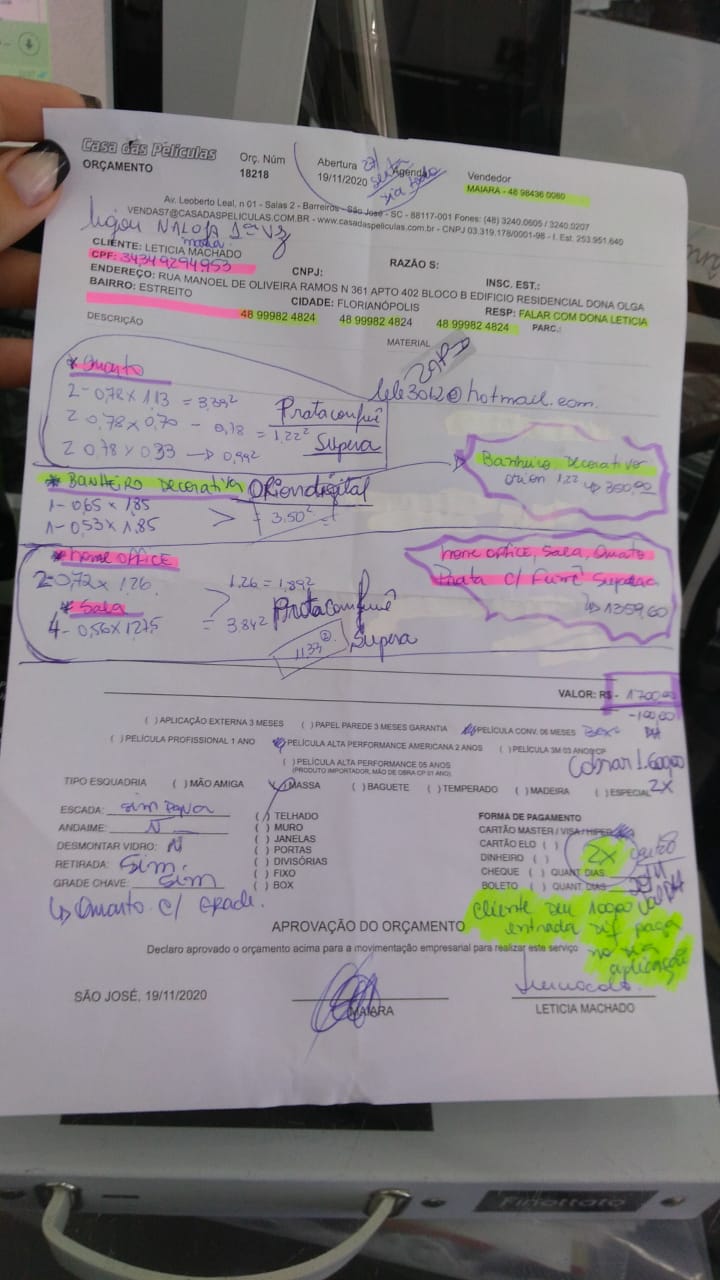 Casa das Películas
ORÇAMENTO
Orç. Núm
18218
Abertura
19/11/2020
Agenda
27/
sexta
dia todo
Vendedor
MAIARA - 48 98436 0080
Av. Leoberto Leal, n 01 - Salas 2 - Barreiros - São José - SC - 88117-001 Fones: (48) 3240.0605 / 3240.0207
VENDAS7@CASADASPELICULAS.COM.BR - www.casadaspeliculas.com.br - CNPJ 03.319.178/0001-98 - I. Est. 253.951.640
ligou NALOJA 1ª vz
CLIENTE: LETICIA MACHADO
CPF: 34349294953
CNPJ:
RAZÃO S:
INSC. EST.:
ENDEREÇO: RUA MANOEL DE OLIVEIRA RAMOS N 361 APTO 402 BLOCO B EDIFICIO RESIDENCIAL DONA OLGA
BAIRRO: ESTREITO
CIDADE: FLORIANÓPOLIS
RESP: FALAR COM DONA LETICIA
48 99982 4824 48 99982 4824 48 99982 4824 PARC.:
DESCRIÇÃO
MATERIAL
ZAP
lele3012@hotmail.com
* Quarto
2 - 0,78 x 1,13 = 3,39²
2 0,78 x 0,70 - 0,78 = 1,22²
2 0,78 x 0,33 → 0,99²
Prata com fumê
Supera
* BANHEIRO DECORATIVO Orion digital
1 - 0,65 x 1,85
1 - 0,53 x 1,85
> = 3,50²
Banheiro Decorativo
orion 1.22 ↳ 350,00
* HOME OFFICE
2 - 0,72 x 1,26
1,26 = 1,89²
* Sala
4 - 0,56 x 1,275
= 3,84²
Prata com fumê
Supera
11,33²
home office, Sala, Quarto
Prata c/ Fumê Supera
↳ 1359,60
VALOR: R$ - 1700,00
-100,00
( ) APLICAÇÃO EXTERNA 3 MESES ( ) PAPEL PAREDE 3 MESES GARANTIA PELÍCULA CONV. 06 MESES
( ) PELÍCULA PROFISSIONAL 1 ANO PELÍCULA ALTA PERFORMANCE AMERICANA 2 ANOS ( ) PELÍCULA 3M 03 ANOS/CP
( ) PELÍCULA ALTA PERFORMANCE 05 ANOS
(PRODUTO IMPORTADOR, MÃO DE OBRA CP 01 ANO)
Cobrar 1.600,00
2X
TIPO ESQUADRIA ( ) MÃO AMIGA MASSA ( ) BAGUETE ( ) TEMPERADO ( ) MADEIRA ( ) ESPECIAL
ESCADA: Sim
ANDAIME: N
DESMONTAR VIDRO: N
RETIRADA: Sim.
GRADE CHAVE: Sim
↳ Quarto c/ Grade.
( ) TELHADO
( ) MURO
( ) JANELAS
( ) PORTAS
( ) DIVISÓRIAS
( ) FIXO
( ) BOX
FORMA DE PAGAMENTO
CARTÃO MASTER / VISA / HIPER
CARTÃO ELO ( )
DINHEIRO ( )
CHEQUE ( ) QUANT. DIAS
BOLETO ( ) QUANT. DIAS
2X
APROVAÇÃO DO ORÇAMENTO
Cliente deu 100,00
entrada dif paga
no dia
aplicação
Declaro aprovado o orçamento acima para a movimentação empresarial para realizar este serviço
SÃO JOSÉ, 19/11/2020
MAIARA
LETICIA MACHADO
Finottato